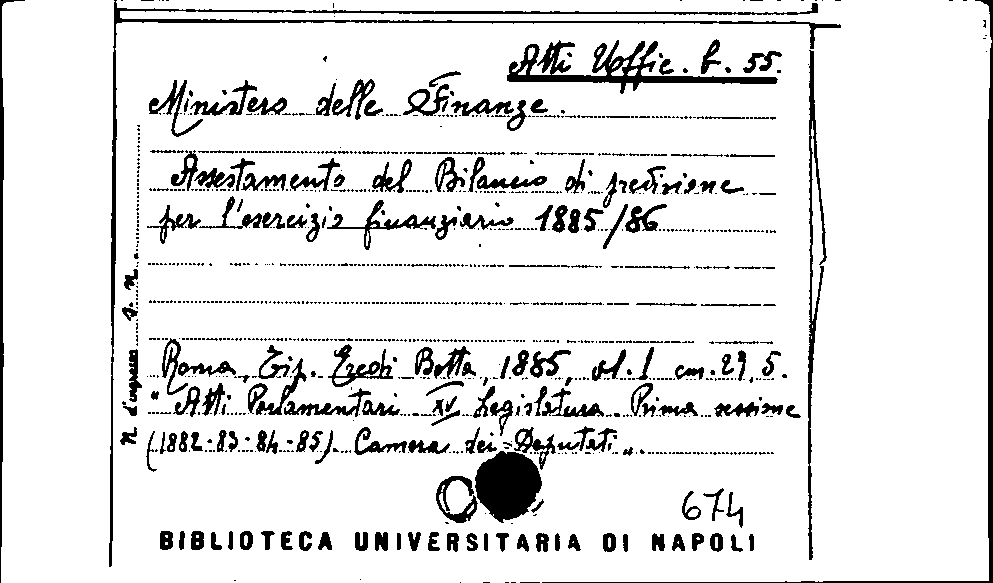 Atti Uffic. b. 55.
Ministero delle Finanze.
Assestamento del Bilancio di previsione
per l'esercizio finanziario 1885/86
N. d'ingresso s. n.
Roma, Tip. Eredi Botta, 1885, vl. 1 cm. 29,5.
"Atti Parlamentari. XV Legislatura. Prima sessione
(1882-83-84-85). Camera dei Deputati".
674
BIBLIOTECA UNIVERSITARIA DI NAPOLI